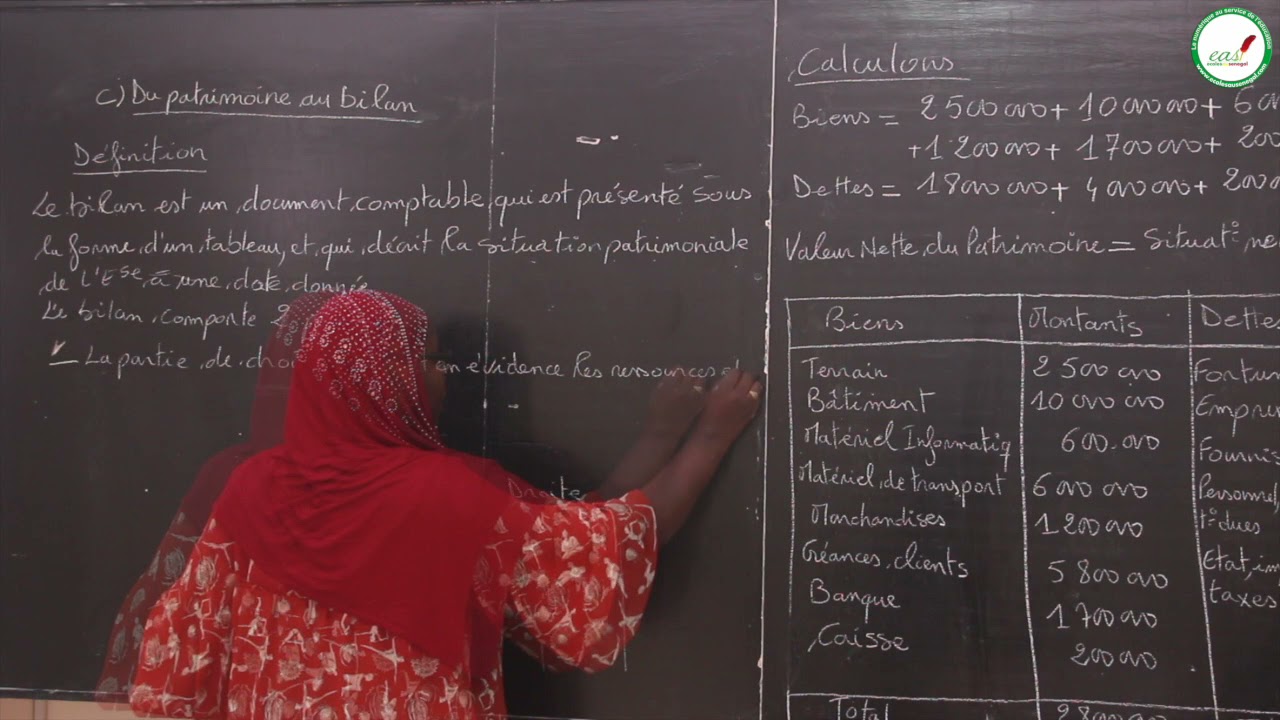 c) Du patrimoine au bilan
Définition
Le bilan est un document comptable qui est présenté sous
la forme d'un tableau et qui décrit la situation patrimoniale
de l'Ese à une date donnée
Le bilan comporte 2
- La partie de en évidence les ressources et
Droite
Calculons
Biens = 2 500 000 + 10 000 000 + 6
+ 1 200 000 + 1 700 000 + 200
Dettes = 1 800 000 + 4 000 000 + 2000
Valeur Nette du Patrimoine = Situat° ne
Biens Montants Dettes
Terrain 2 500 000 Fortun
Bâtiment 10 000 000 Empru
Matériel Informatiq 600.000 Fournis
Matériel de transport 6 000 000 Personnel
Marchandises 1 200 000 t° dues
Créances clients 5 800 000 Etat, im
Banque 1 700 000 taxes
Caisse 200 000
Total
Le numérique au service de l'éducation
eas
ecolesausenegal
www.ecolesausenegal.com